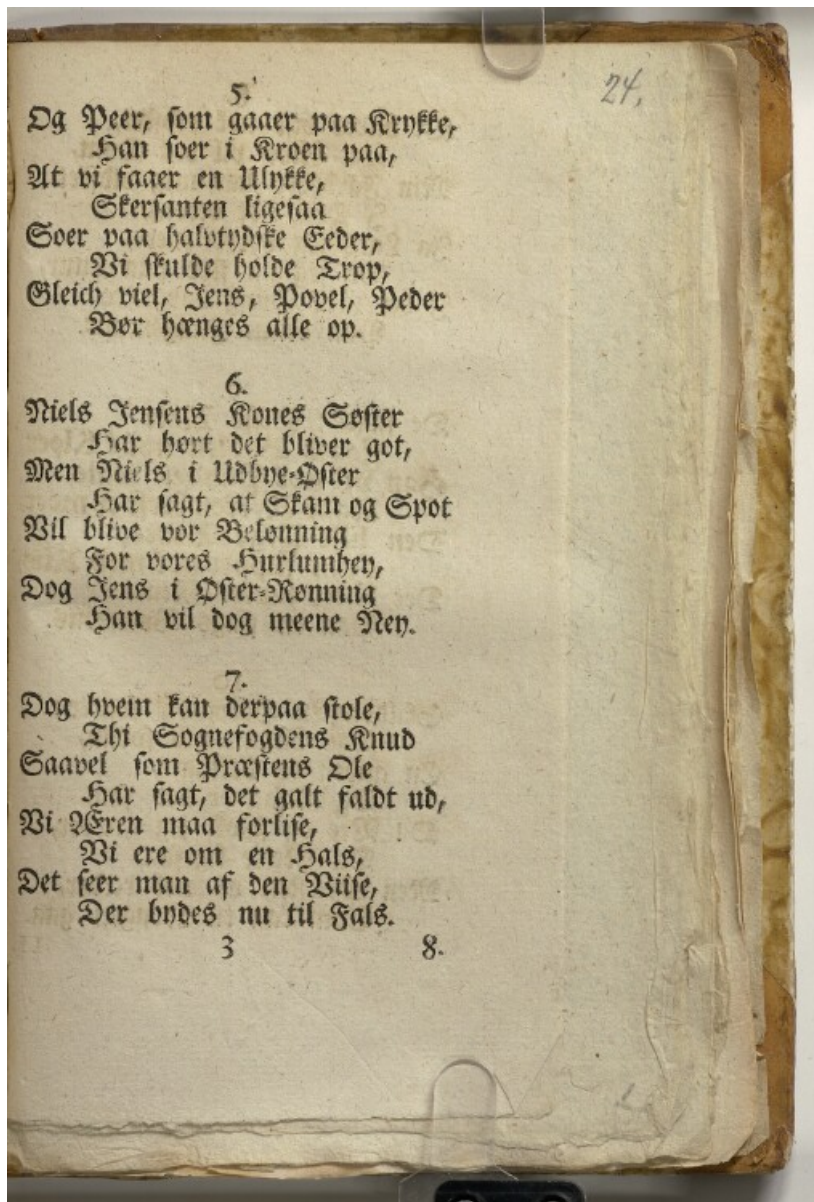 24.
5.
Og Peer, som gaaer paa Krykke,
Han soer i Kroen paa,
At vi faaer en Ulykke,
Skersanten ligesaa
Soer paa halvtydske Eeder,
Vi skulde holde Trop,
Gleich viel, Jens, Povel, Peder
Bør hænges alle op.
6.
Niels Jensens Kones Søster
Har hørt det bliver got,
Men Niels i Udbye-Øster
Har sagt, at Skam og Spot
Vil blive vor Belønning
For vores Hurlumhey,
Dog Jens i Øster-Rønning
Han vil dog meene Ney.
7.
Dog hvem kan derpaa stole,
Thi Sognefogdens Knud
Saavel som Præstens Ole
Har sagt, det galt faldt ud,
Vi Æren maa forlise,
Vi ere om en Hals,
Det seer man af den Viise,
Der bydes nu til Fals.
3 8.